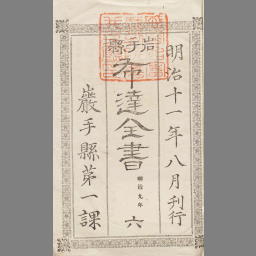 明治十一年八月刊行
岩手縣
布達全書
明治九年
六
巖手縣第一課